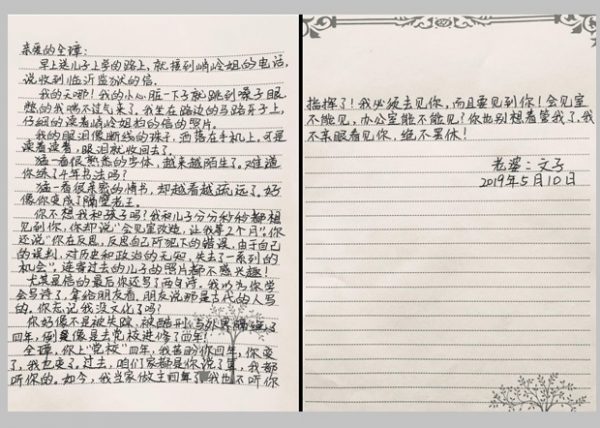 亲爱的全璋：
早上送儿子上学的路上，就接到峭岭姐的电话，
说收到临沂监狱的信。
我的天哪！我的小心脏一下子就跳到嗓子眼，
憋的我喘不过气来了。我坐在路边的马路牙子上，
仔细的读着峭岭姐拍的信的照片。
我的眼泪像断线的珠子，洒落在手机上。可是
读着读着，眼泪就收回去了。
猛一看很熟悉的字体，越来越陌生了。难道
你练了4年书法吗？
猛一看很亲密的情书，却越看越疏远了。好
像你变成了隔壁老王。
你不想我和孩子吗？我和儿子分分秒秒都想
见到你，你却说“会见室改造，让我等2个月”。你
还说“你在反思，反思自己所犯下的错误，由于自己
的误判，对历史和政治的无知，失去了一系列的
机会”。连寄过去的儿子的照片都不感兴趣！
尤其是信的最后你还写了两句诗。我以为你学
会写诗了，拿给朋友看，朋友说那是古代的人写
的。你忘记我没文化了吗？
你好像不是被失踪、被酷刑、与外界隔绝了
四年，倒是像是去党校进修了四年！
全璋，你上“党校”四年，我苦盼你四年，你变
了，我也变了。过去，咱们家都是你说了算，我都
听你的。如今，我当家做主四年了，我也不听你
指挥了！我必须去见你，而且要见到你！会见室
不能见，办公室能不能见？你也别想着管我了。我
不亲眼看见你，绝不罢休！
老婆：文子
2019年5月10日